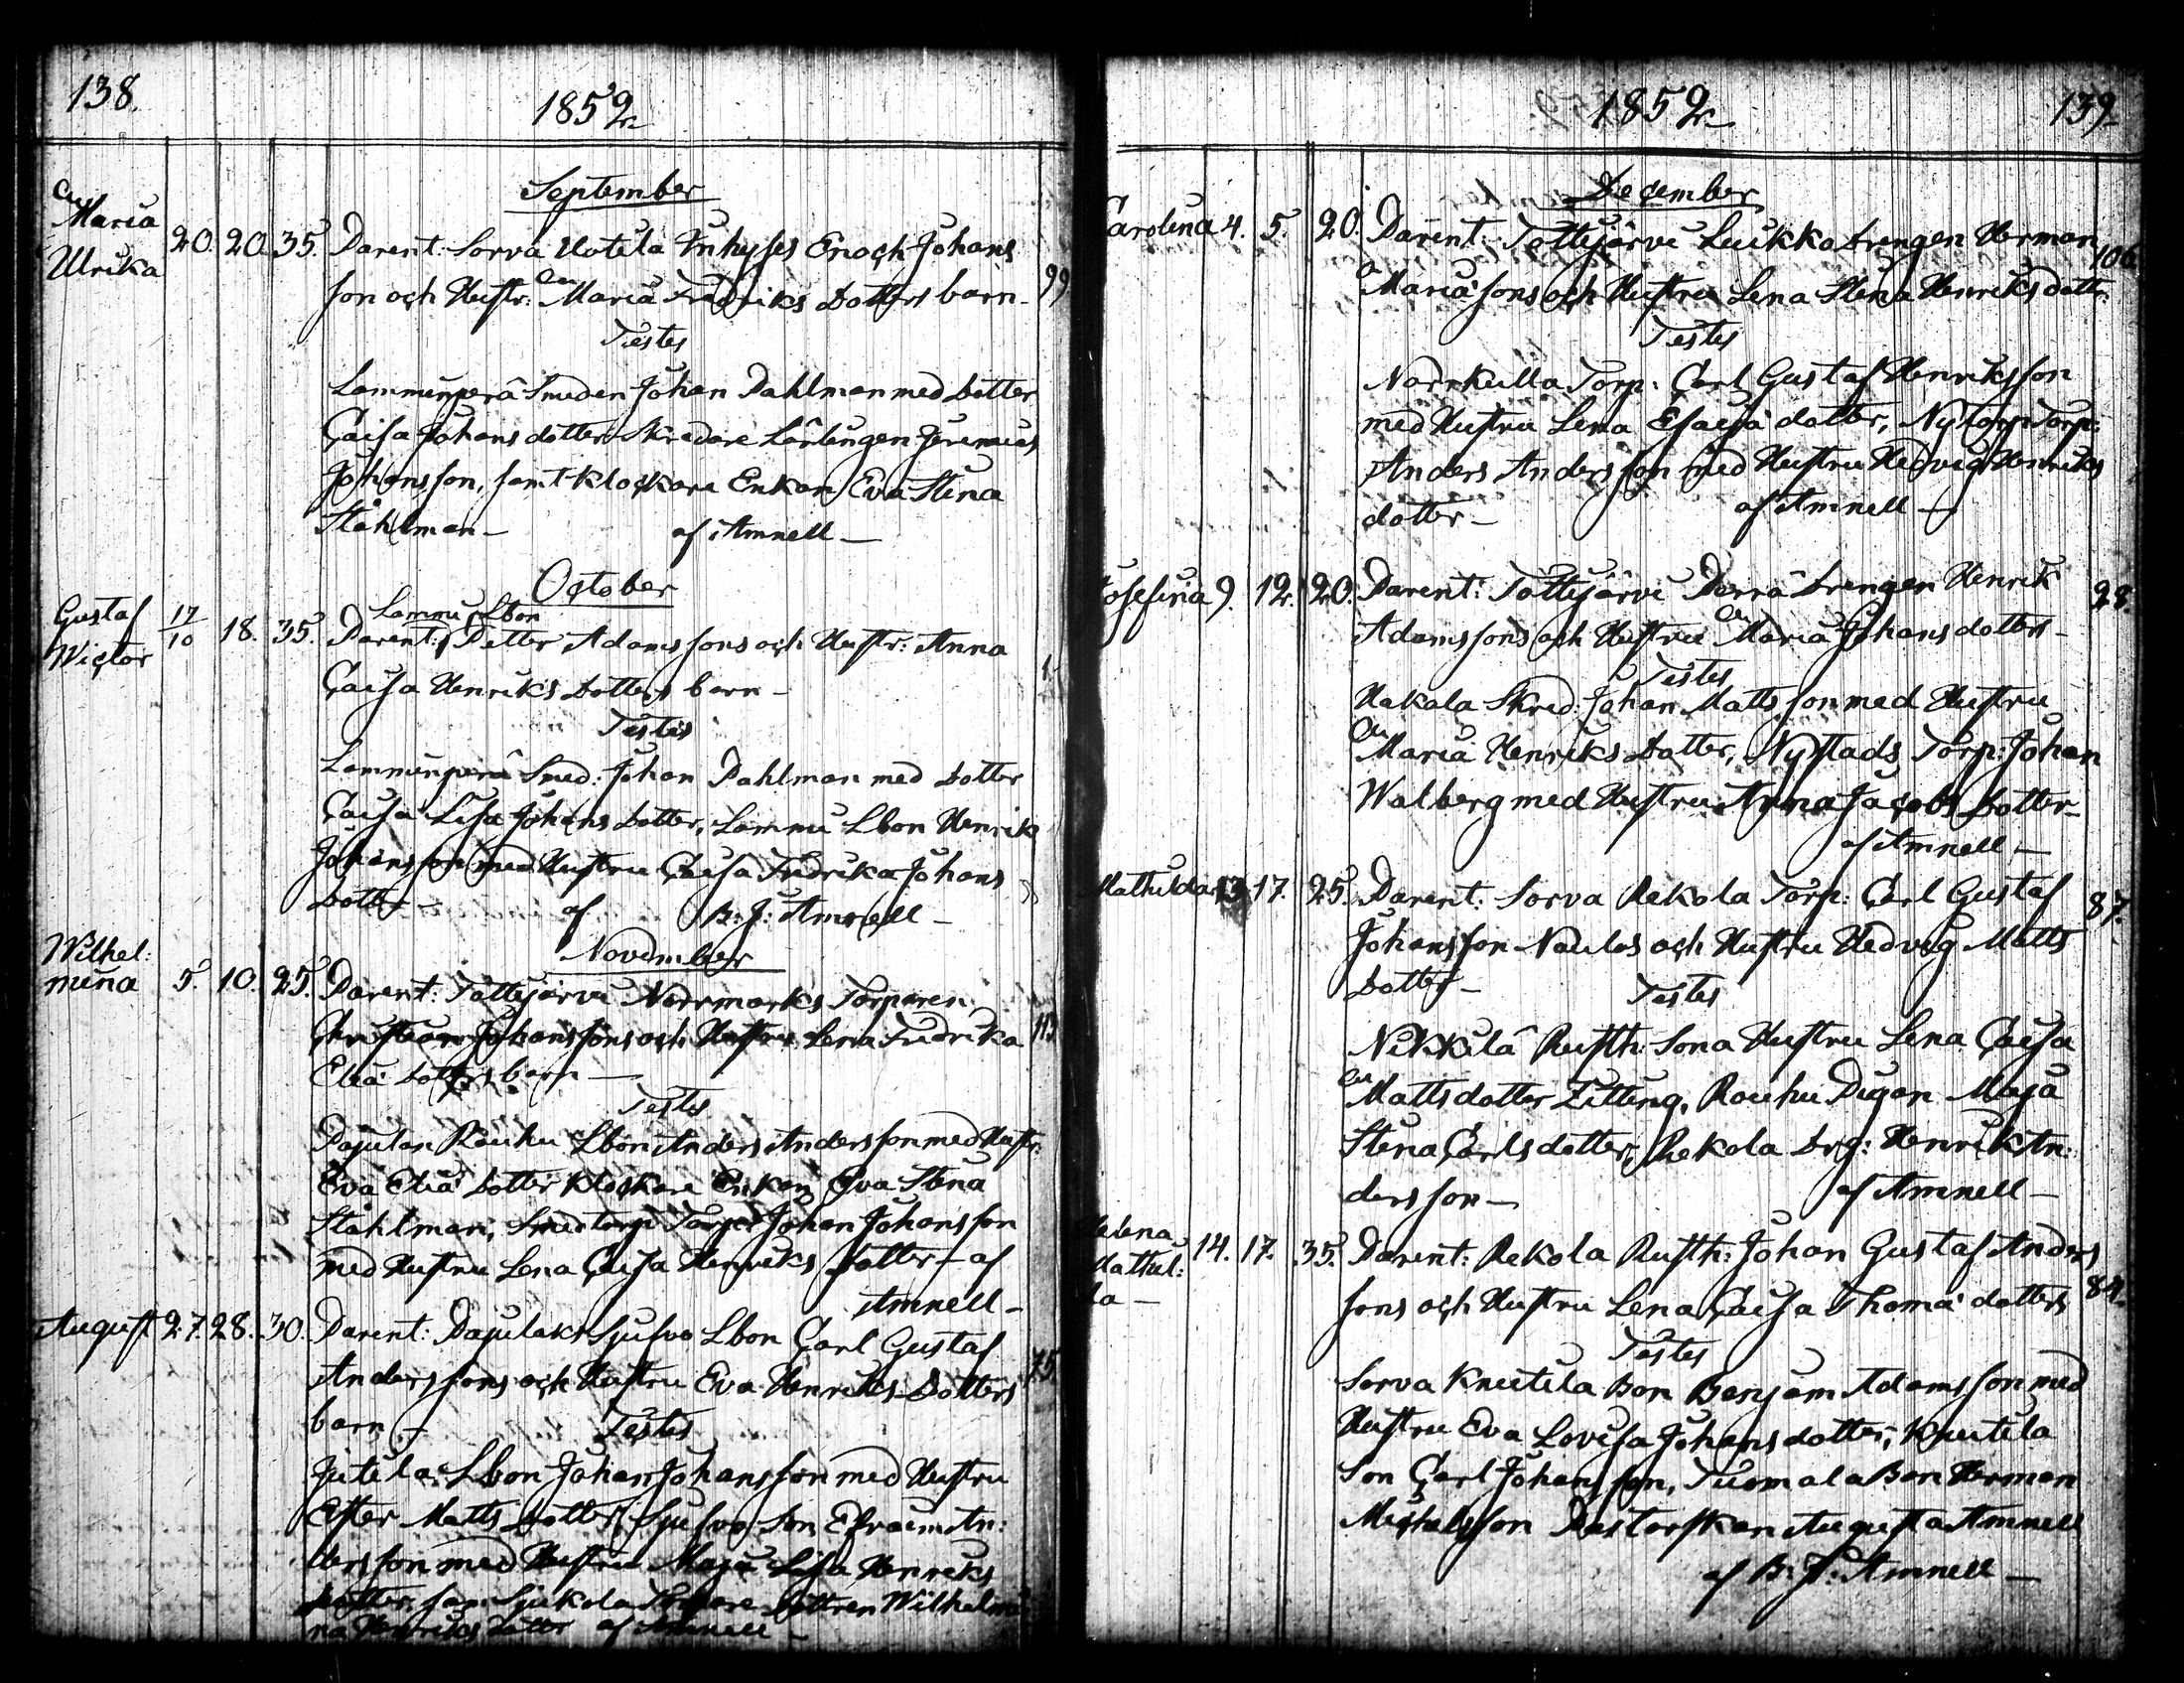 138.
1852
September
Maria
Ulrika
20. 20. 35. Parent: Sorva Uotila Inhyses Enoch Johans
son och Hustr: Maria Fredriks Dotters barn - 99
Testes
Lammenperä Smeden Johan Dahlman med dotter
Caisa Johans dotter, Skredare Lärlingen Jeremias
Johansson, samt klockare Enkan Eva Stina
Ståhlman - af Amnell -
October
Gustaf
Wictor
17/10 18. 35. Parent: Lammi Lbon Petter Adamssons och Hustr: Anna
Caisa Henriks Dotters barn -
Testes
Lammenperä Smed: Johan Dahlman med dotter
Caisa Lisa Johans dotter, Lammi Lbon Henrik
Johansson med Hustru Caisa Fredrika Johans
Dott - af B: J: Amnell -
November
Wilhel:
mina 5. 10. 25. Parent: Tottijärvi Norrmarks Torparen
Christian Johanssons och Hustru Lena Fredrika 113
Eliä dotters barn -
Testes
Pajulan Rauhu Lbon Anders Andersson med Hustr:
Eva Eliä dotter klockare Enkan Eva Stina
Ståhlman, Smedtorp Torper Johan Johansson
med Hustru Lena Caisa Henriks dotter - af
Amnell -
August 27. 28. 30. Parent: Pajulaks Sjusvo Lbon Carl Gustaf
Anderssons och Hustru Eva Henriks Dotters 75.
barn - Testes
Jutila Lbon Johan Johansson med Hustru
Ester Matts dotter, Sjusvo Son Efraim An:
dersson med Hustru Maja Lisa Henriks
dotter, sam: Sjukola dottren Wilhelmi
na Henriks dotter af Amnell -
1852 139
December
Carolina 4. 5. 20. Parent: Tottijärvi Luikko Drengen Herman 106.
Mariäsons och Hustru Lena Stina Henriks dotter:
Testes
Norrkulla Torp: Carl Gustaf Henriksson
med Hustru Lena Esaiä dotter, Nytorp Torp:
Anders Andersson med Hustru Hedvig Henriks
dotter - af Amnell -
Josefina 9. 12. 20. Parent: Tottijärvi Perrä Drengen Henrik 28.
Adamssons och Hustru Maria Johans dotters -
Testes
Hakala Skred: Johan Mattsson med Hustru
Maria Henriks Dotter, Nystads Torp: Johan
Walberg med Hustru Anna Jacobs Dotter -
af Amnell -
Mathilda 13. 17. 25. Parent: Sorva Rekola Torp: Carl Gustaf 87.
Johansson Naulas och Hustru Hedvig Matts
Dotters - Testes
Nikkilä Rusth: Sona Hustru Lena Caisa
Mattsdotter Zitting, Rauhu Pigan Maja
Stina Carlsdotter, Rekola Drg: Henrik An:
dersson - af Amnell -
Helena
Mathil:
da - 14. 17. 35. Parent: Rekola Rusth: Johan Gustaf Anders
sons och Hustru Lena Caisa Thomä dotters 84.
Testes
Sorva Knutila Bon Benjam Adamsson med
Hustru Eva Lovisa Johansdotter, Knutila
Son Carl Johansson, Tuomala Bon Herman
Michelsson Pastorskan Augusta Amnell
af B: J: Amnell -